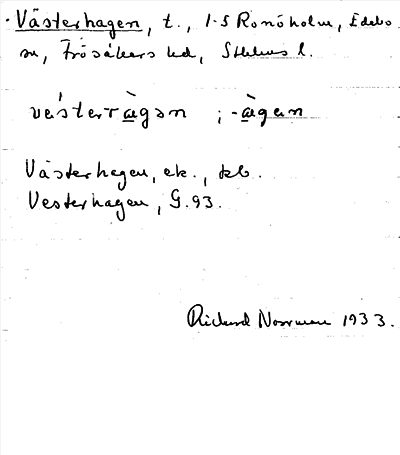 Västerhagen, t., 1-5 Ronöholm, Edebo
sn, Frösåkers hd, Sthlms l.
vèsterràgan ; -àgen
Västerhagen, ek., kb.
Vesterhagen, G.93.
Rickard Norrman 1933.